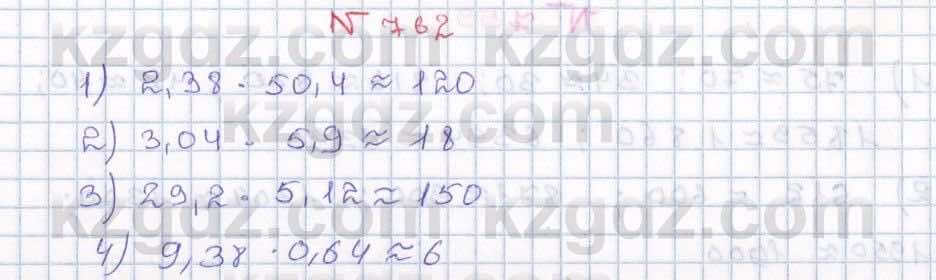 № 762
1) 2,38 · 50,4 ≈ 120
2) 3,04 · 5,9 ≈ 18
3) 29,2 · 5,12 ≈ 150
4) 9,38 · 0,64 ≈ 6
kzgdz.com kzgdz.com
kzgdz.com kzgdz.com
kzgdz.com kzgdz.com